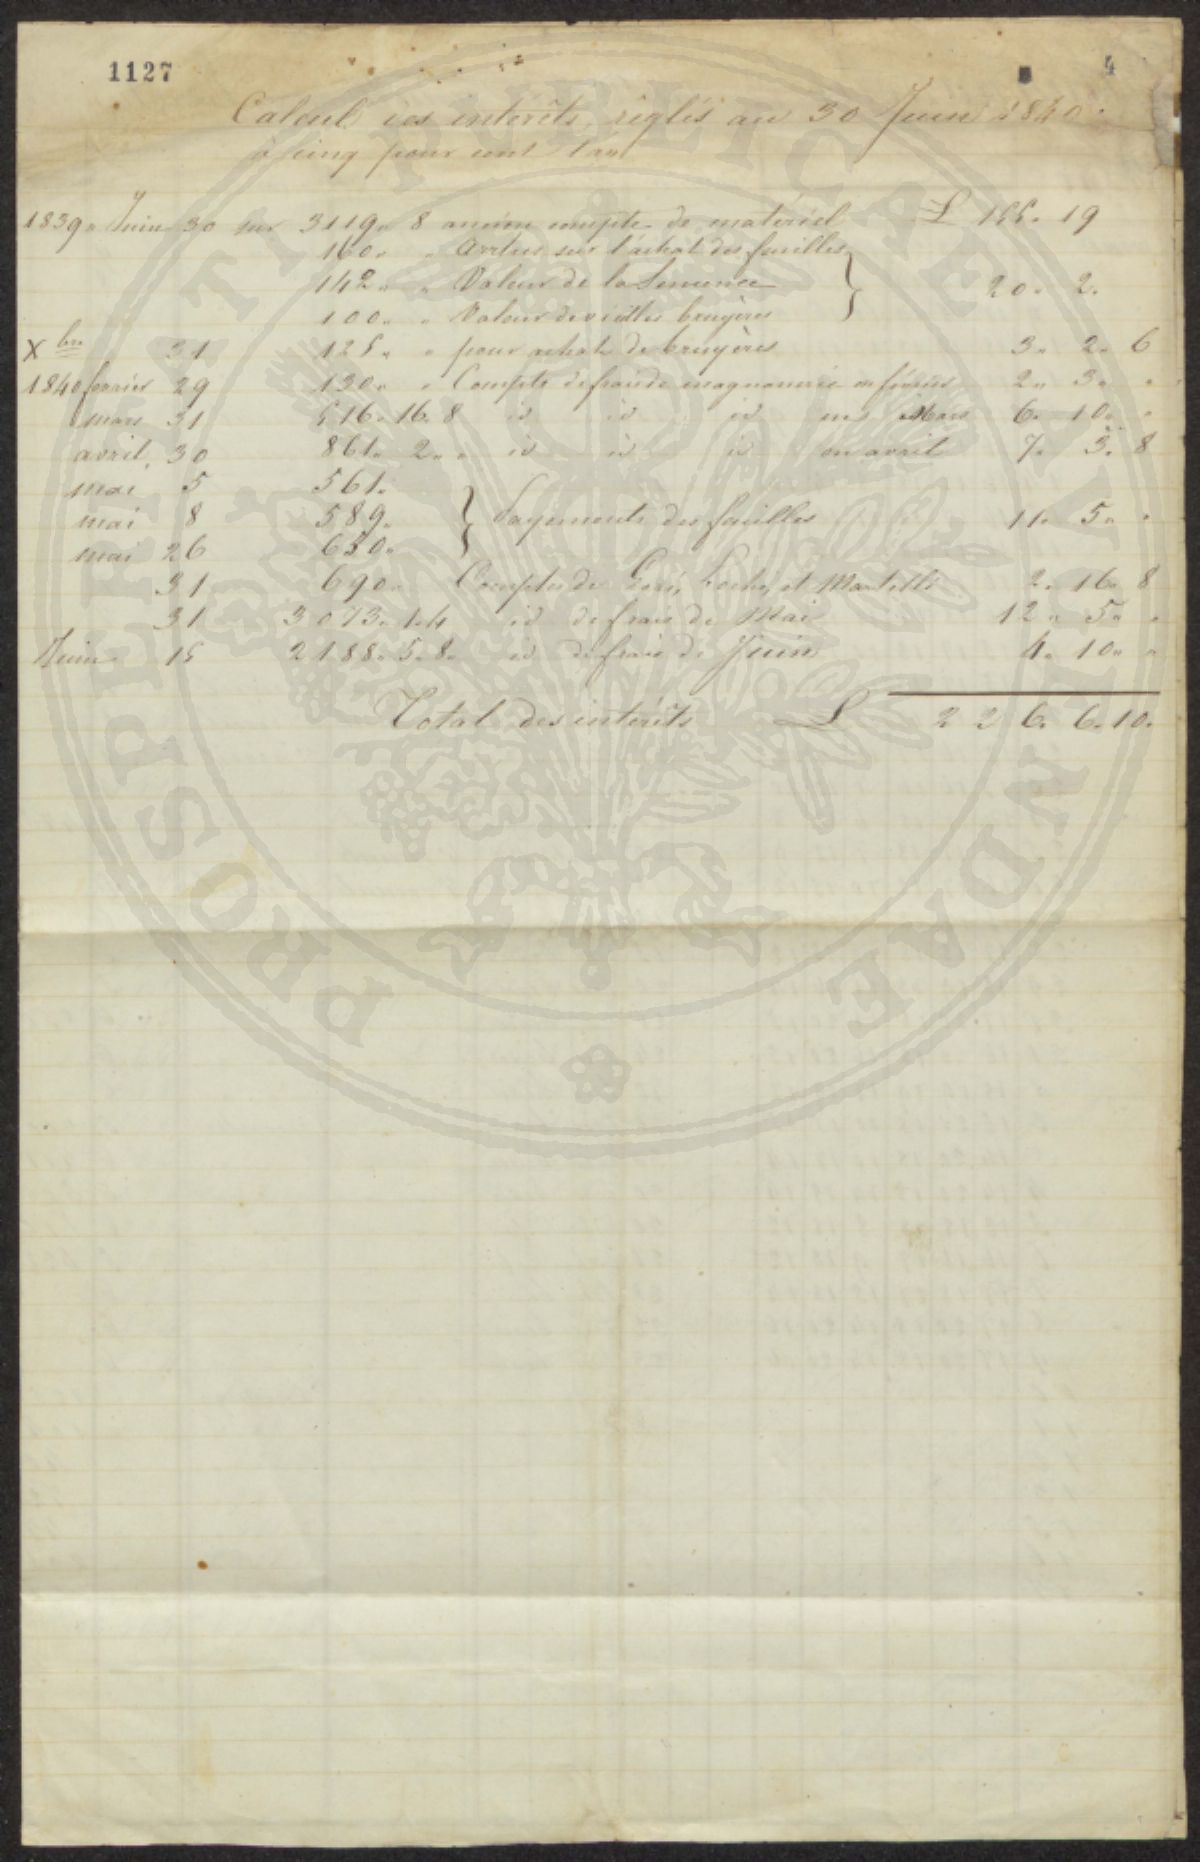 1127 4
Calcul des intérêts, réglés au 30 Juin 1840.
à cinq pour cent l'an
1839. Juin 30 sur 3119. 8 ancien compte de matériel £ 155. 19
160. " Arrhes sur l'achat des feuilles
142. " Valeur de la Semence } 20. 2.
100. " Valeur de vieilles bruyères
Xbre 31 125. " pour achat de bruyères 3. 2. 6
1840 fevrier 29 130. " Compte de frais de magnanerie en février 2. 3. "
mars 31 516. 16. 8 id id id en Mars 6. 10. "
avril. 30 861. 2. " id id id en avril 7. 3. 8
mai 5 561.
mai 8 589. } Payements des feuilles 11. 5. "
mai 26 650.
31 690. Comptes de et Martelli 2. 16. 8
31 3073. 1. 4 id de frais de Mai 12. 5. "
Juin 15 2188. 5. 8. id de frais de Juin 4. 10. "
Total des intérêts £ 226. 6. 10.
PROSPERITATI PUBLICAE AUGENDAE